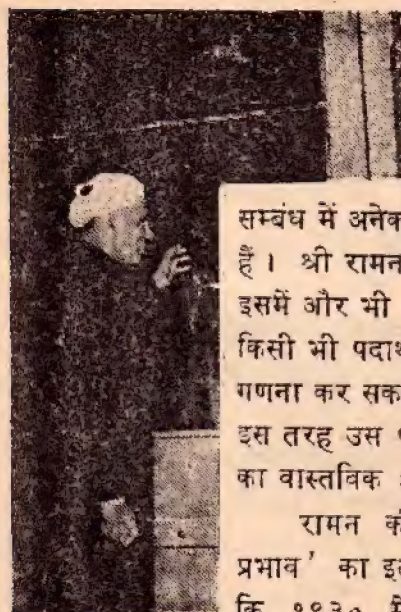 सम्बंध में अनेक
हैं । श्री रामन
इसमें और भी
किसी भी पदार्थ
गणना कर सक
इस तरह उस
का वास्तविक
रामन की
प्रभाव ' का इ
कि १९३० में